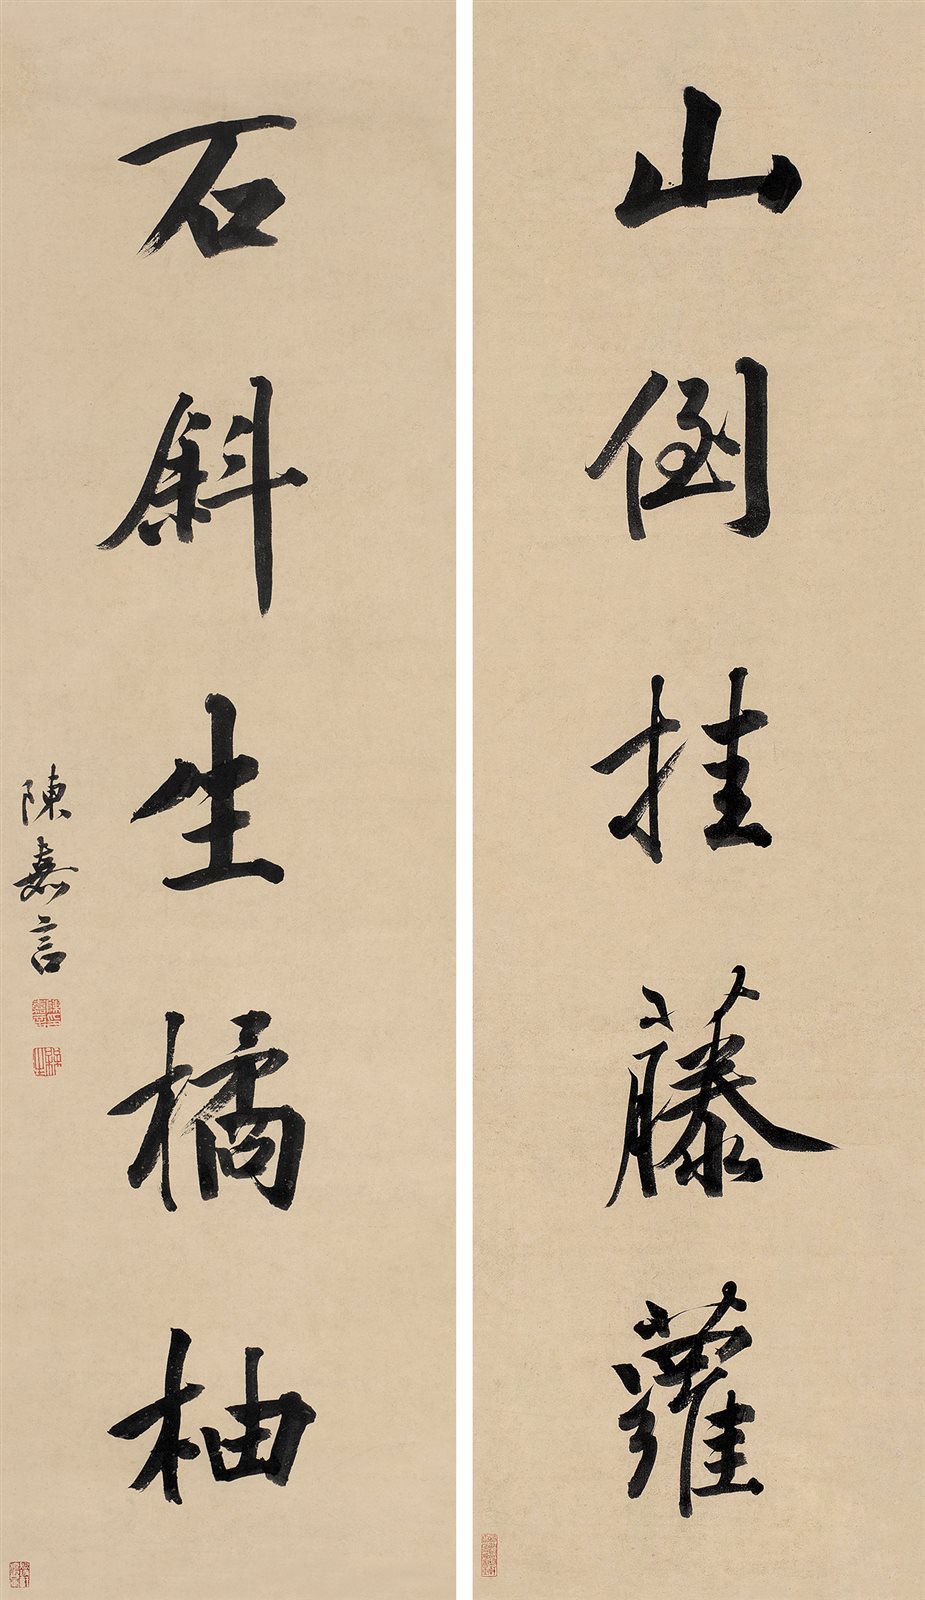 山倒挂藤蘿
石斜生橘柚
陳嘉言